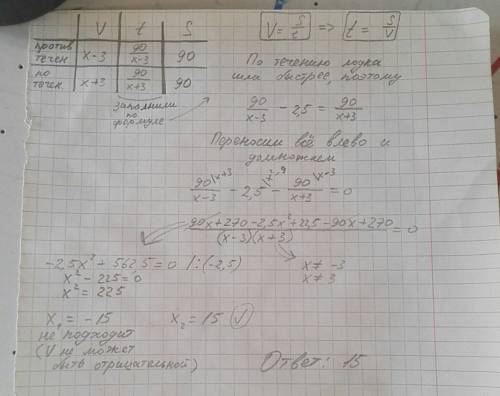 V t S
против течен. x-3 90/(x-3) 90
по течен. x+3 90/(x+3) 90
заполнили по формуле
V = S/t => t = S/V
По течению лодка
шла быстрее, поэтому
90/(x-3) - 2,5 = 90/(x+3)
Переносим всё влево и
домножаем
90\x+3/(x-3) - 2,5\x²-9 - 90\x-3/(x+3) = 0
(90x+270-2,5x²+22,5-90x+270)/((x-3)(x+3)) = 0
-2,5x²+562,5=0 /:(-2,5)
x²-225=0
x²=225
x≠ -3
x≠ 3
x₁ = -15
x₂ = 15 √
не подходит
(V не может
быть отрицательной)
Ответ: 15